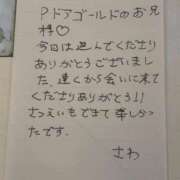 Pドアゴールドのお兄
様♡
今日は遊んでくださり
ありがとうございまし
た。遠くから会いに来て
くださりありがとう!!
さつえいもできて楽しかっ
たです。
さわ